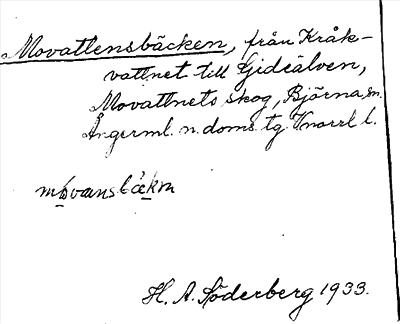 Movattensbäcken, från Kråk-
vattnet till Gideälven,
Movattnets skog, Björna sn.
Ångerml. n. doms. tg. Vnorrl l.
mòvansbä̀km
H. A. Söderberg 1933.